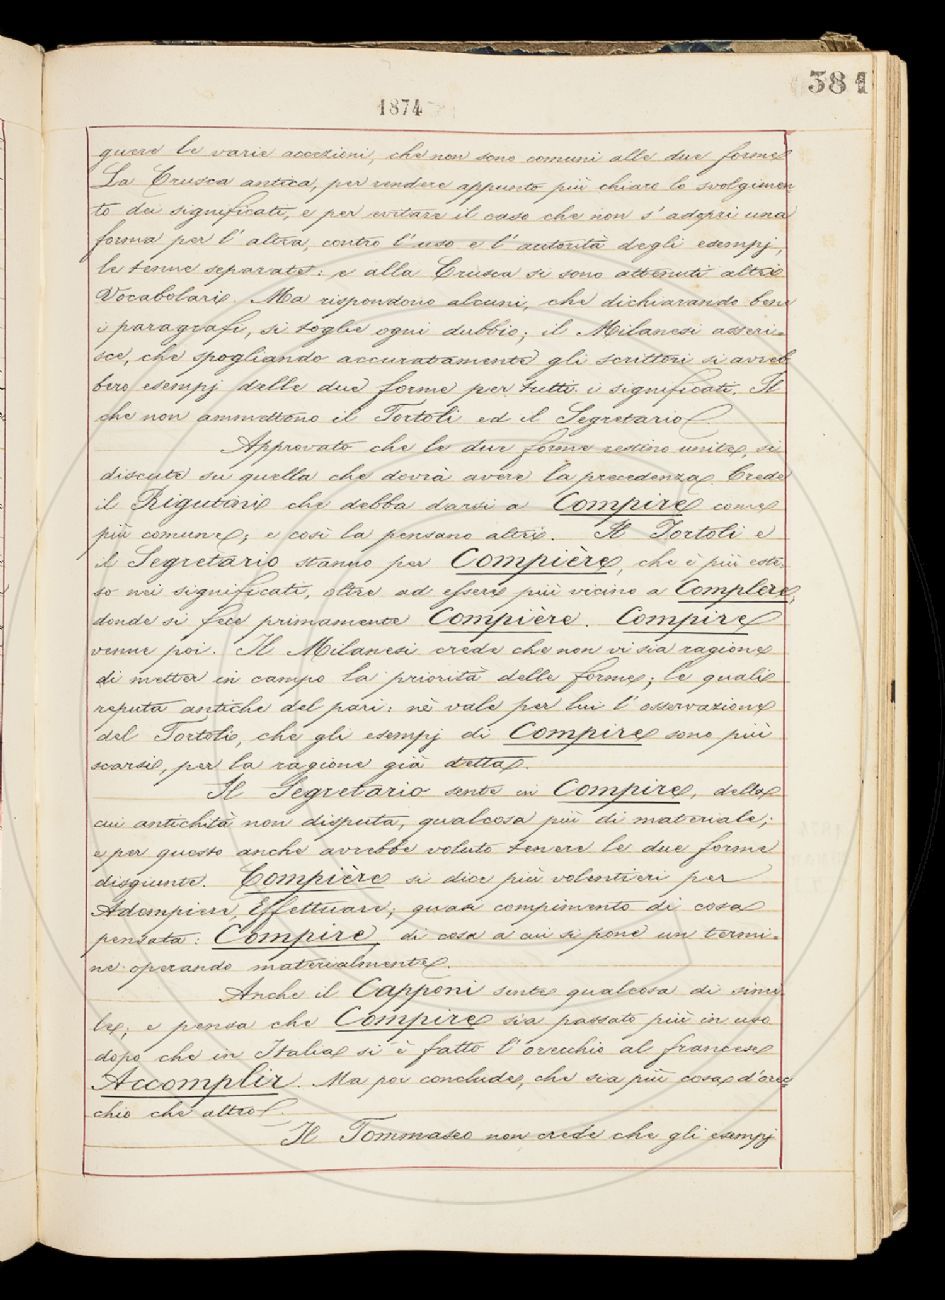 381
1874
guere le varie accezioni, che non sono comuni alle due forme
La Crusca antica, per rendere appunto più chiaro lo svolgimen
to dei significati, e per evitare il caso che non s'adopri una
forma per l'altra, contro l'uso e l'autorità degli esempj,
le tenne separate: e alla Crusca si sono attenuti altri
Vocabolari. Ma rispondono alcuni, che dichiarando bene
i paragrafi, si toglie ogni dubbio; il Milanesi asseri=
sce, che spogliando accuratamente gli scrittori si avreb
bero esempj delle due forme per tutti i significati. Il
che non ammettono il Tortoli ed il Segretario.
Approvato che le due forme restino unite, si
discute su quella che dovrà avere la precedenza. Crede
il Rigutini che debba darsi a Compire come
più comune; e così la pensano altri. Il Tortoli e
il Segretario stanno per Compière, che è più este
so nei significati, oltre ad essere più vicino a Complere,
donde si fece primamente Compière. Compire
venne poi. Il Milanesi crede che non vi sia ragione
di metter in campo la priorità delle forme; le quali
reputa antiche del pari: nè vale per lui l'osservazione
del Tortoli, che gli esempj di Compire sono più
scarsi, per la ragione già detta.
Il Segretario sente in Compire, della
cui antichità non disputa, qualcosa più di materiale;
e per questo anche avrebbe voluto tenere le due forme
disgiunte. Compière si dice più volentieri per
Adempiere, Effettuare; quasi compimento di cosa
pensata: Compire, di cosa a cui si pone un termi=
ne operando materialmente.
Anche il Capponi sente qualcosa di simi
le; e pensa che Compire sia passato più in uso
dopo che in Italia si è fatto l'orecchio al francese
Accomplir. Ma poi conclude, che sia più cosa d'orec
chio che altro.
Il Tommaseo non crede che gli esempj